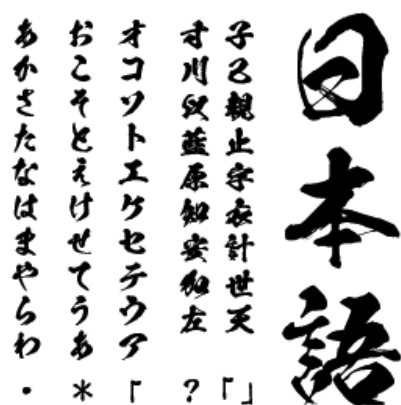 日本語
子己親止宇衣計世天「」
才川藍原知安加左?
オコソトエケセテウア「
おこそとえけせてうあ*
あかさたなはまやらわ・